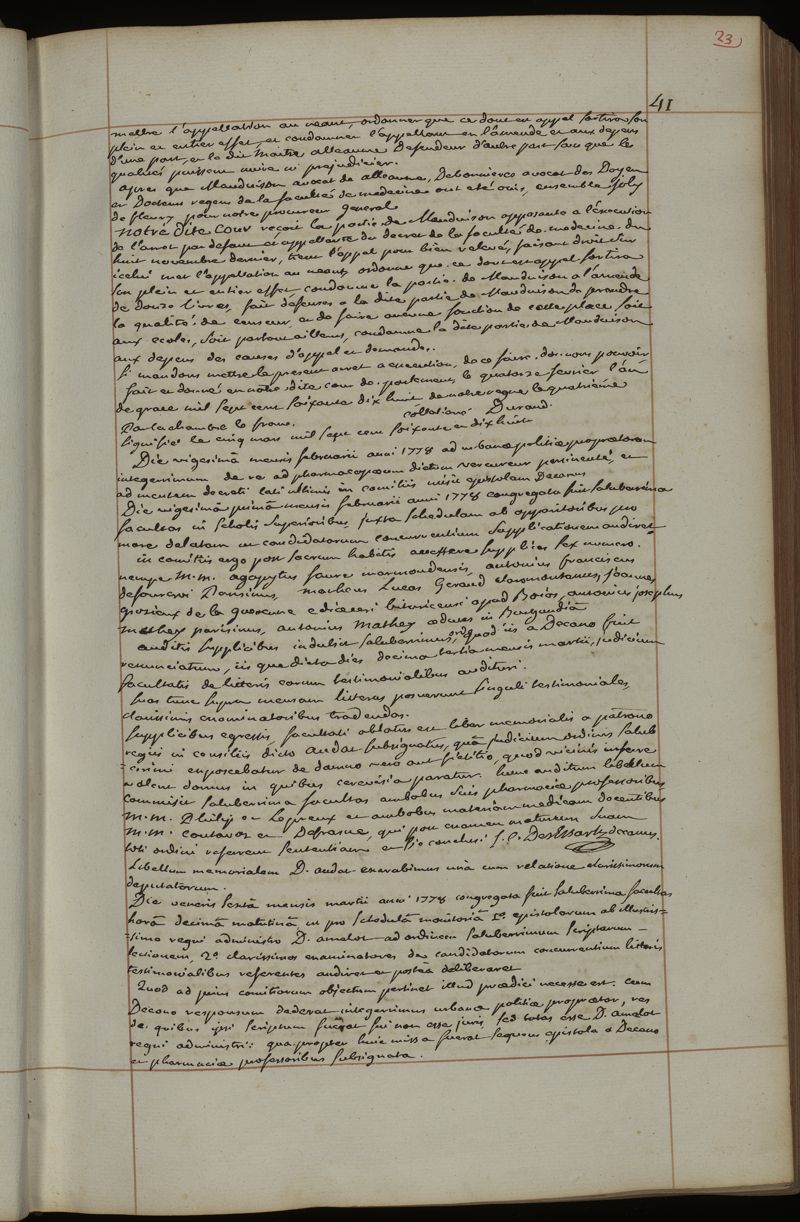 23
41
mettre l'appellation au neant, ordonner que ce dont en appel sortiroit son
plein et entier effet, et condamner l'appellant en l'amende et aux depens
d'une part, et le dit Maitre alleaume Defendeur d'autre part sans que les
qualités puissent nuire ni prejudicier.
apres que Mauduison avocat de alleaume, Debonnieres avocat des Doyen
et Docteurs regens de la faculté de medecine ont eté ouis, ensemble Joly
de fleury pour notre procureur general
notre dite Cour reçoit la partie de Mauduison opposante a l'execution
de l'arret par defaut et appellante du decret de la faculté de medecine du
huit novembre dernier, tient l'appel pour bien relevé, faisant droit sur
icelui met l'appellation au neant, ordonne que ce dont est appel sortira
son plein et entier effet condamne la partie de Mauduison a l'amende
de douze livres, fait defenses a la dite partie de Mauduison de prendre
la qualité de censeur, et de faire aucune fonction de cette place, soit
aux ecoles, soit partout ailleurs, condamne la dite partie de Mauduison
aux depens des causes d'appel et demande.
si mandons mettre le present arret a execution, de ce faire donnons pouvoir
fait et donné en notre dite cour de parlement le quatorze fevrier l'an
de grace mil sept cent soixante dix huit de notre regne le quatrieme
Par la chambre le franc. collationé Durand.
signifié le cinq mars mil sept cent soixante et dix huit
Die vigesimâ mensis februarii anni 1778 ad urbanæ politiæ propraetorem
integerrimum de re ad pharmacopoeum dictum vercureur pertinente, et
ad mentem decreti lati ultimis in comitiis misit epistolam Decanus
Die vigesimâ primâ mensis februarii anni 1778 congregata fuit saluberrima
facultas in scholis superioribus juxta schedulam ab apparitoribus pro
more delatam ut candidatorum concurrentium supplicationem audiret
in comitiis ergo post sacrum habitis accessere supplices sex numero.
nempe M.M. agapytus faure marmondensis, antonius franciscus
defourcroi Parisinus, matheus Lucas Geraud claromontanus, joannes
groziaux de la guerenne e dioecesi bituricensi apud Boios, antonius josephus
Mathey parisinus, antonius Mathey aduus in Burgundiâ
auditis supplicibus indulsit saluberrimus ordo quod iis a Decano fuit
renunciatum, iis que dicta dies decima tertia mensis martii, judicium
facultatis de litteris eorum testimonialibus audituri.
suas tunc supra mensam litteras posuerunt singuli testimoniales,
clarissimis examinatoribus tradendas.
supplicibus egressis, facultati oblatus est liber memorialis a patrono
regis in consiliis dicto audat subsignatus, quô judicium ordinis salub
=errimi exposcebatur de damno vero aut fictitio, quod vicinis inferre
valent domus in quibus cerevisia paratur. hunc auditum libellum
commisit saluberrima facultas ambobus suis pharmaciæ professoribus
M.M. Philip et Lepreux et ambobus materiam medicam docentibus
M.M. coutavoz et Defrasne, qui post examen maturum suam
toti ordini referrent sententiam et sic conclusi J.C. Desessartz decanus.
Libellum memorialem D. audat exarabimus unà cum relatione clarissimorum
deputatorum.
Die veneris sextâ mensis martii anni 1778 congregata fuit saluberrima facultas
horâ decimâ matutinâ, ut pro schedulâ monitoriâ 1° epistolarum ab illustris=
=simo regni administro D. amelot ad ordinem saluberrimum scriptarum
lectionem, 2° clarissimos examinatores de candidatorum concurrentium litteris
testimonialibus referentes audiret et posteà deliberaret
Quod ad prius comitiorum objectum pertinet illud prædici necesse est. cum
Decano responsum dederat integerrimus urbanæ politiæ propraetor, res
de quibus ipsi scriptum fuerat sui non esse juris sed totas esse D. amelot
regni administri: quapropter huic missa fuerat sequens epistola a Decano
et pharmaciæ professoribus subsignata.